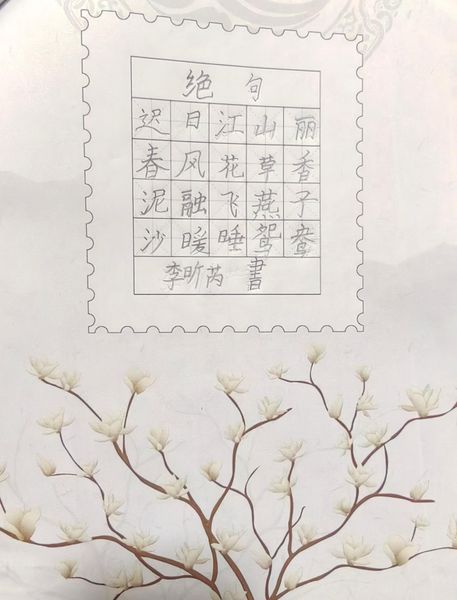 绝句
迟日江山丽
春风花草香
泥融飞燕子
沙暖睡鸳鸯
李昕芮 書